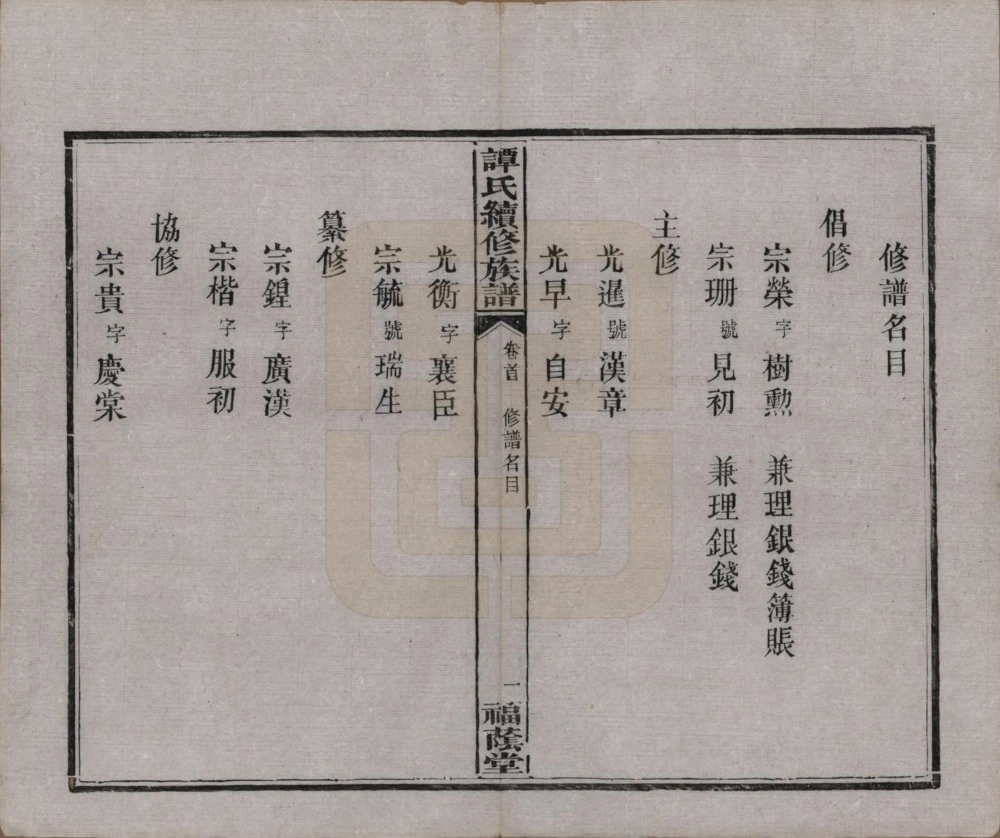 修譜名目
倡修
宗榮字樹勲兼理銀錢簿賬
宗珊號見初兼理銀錢
主修
光暹號漢章
光早字自安
譚氏續修族譜
卷首 修譜名目
一
福蔭堂
光衡字襄臣
宗毓號瑞生
纂修
宗鍟字廣漢
宗楷字服初
協修
宗貴字慶棠